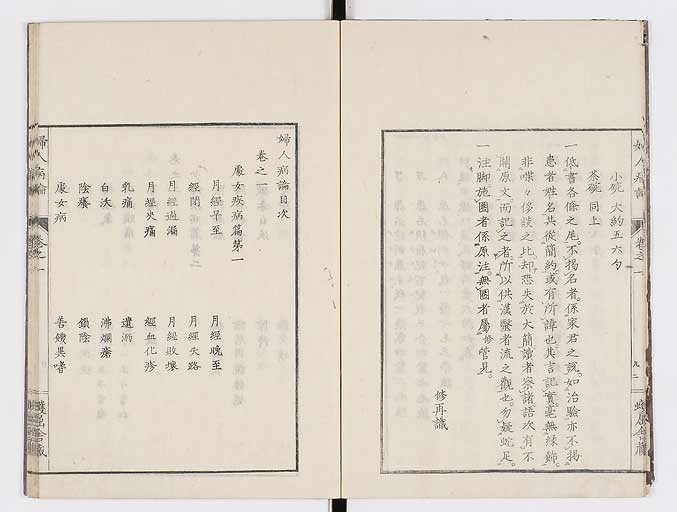 小碗 大約五六勺
茶碗 同上
一低書各條之尾。不揭名者。係家君之説。如治驗亦不揭
患者姓名。共從簡約。或有所諱也。其言記實。毫無緣飾。
非喋々侈談之比。却恐失於大簡。讀者察諸。語次有不
關原文。而記之者。所以供漢醫者流之觀也。勿疑蛇足。
一注脚施圈者。係原注。無圈者。屬修管見。
修再識
婦人病論目次
卷之一
處女疾病篇第一
月經早至
月經晩至
經閉
月經失路
月經過漏
月經敗壞
月經火痛
經血化疹
乳痛
遺溺
白沃
沸爛瘡
陰癢
鎖陰
處女病
善餓異嗜
婦人病論